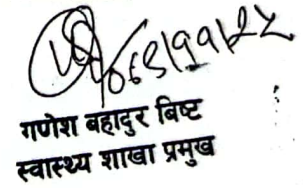 गणेश बहादुर बिष्ट
स्वास्थ्य शाखा प्रमुख